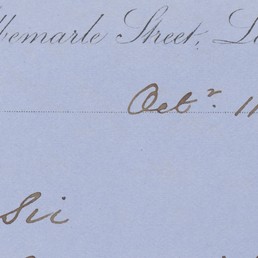 bemarle Street, Lo
Octr. 11
Sir